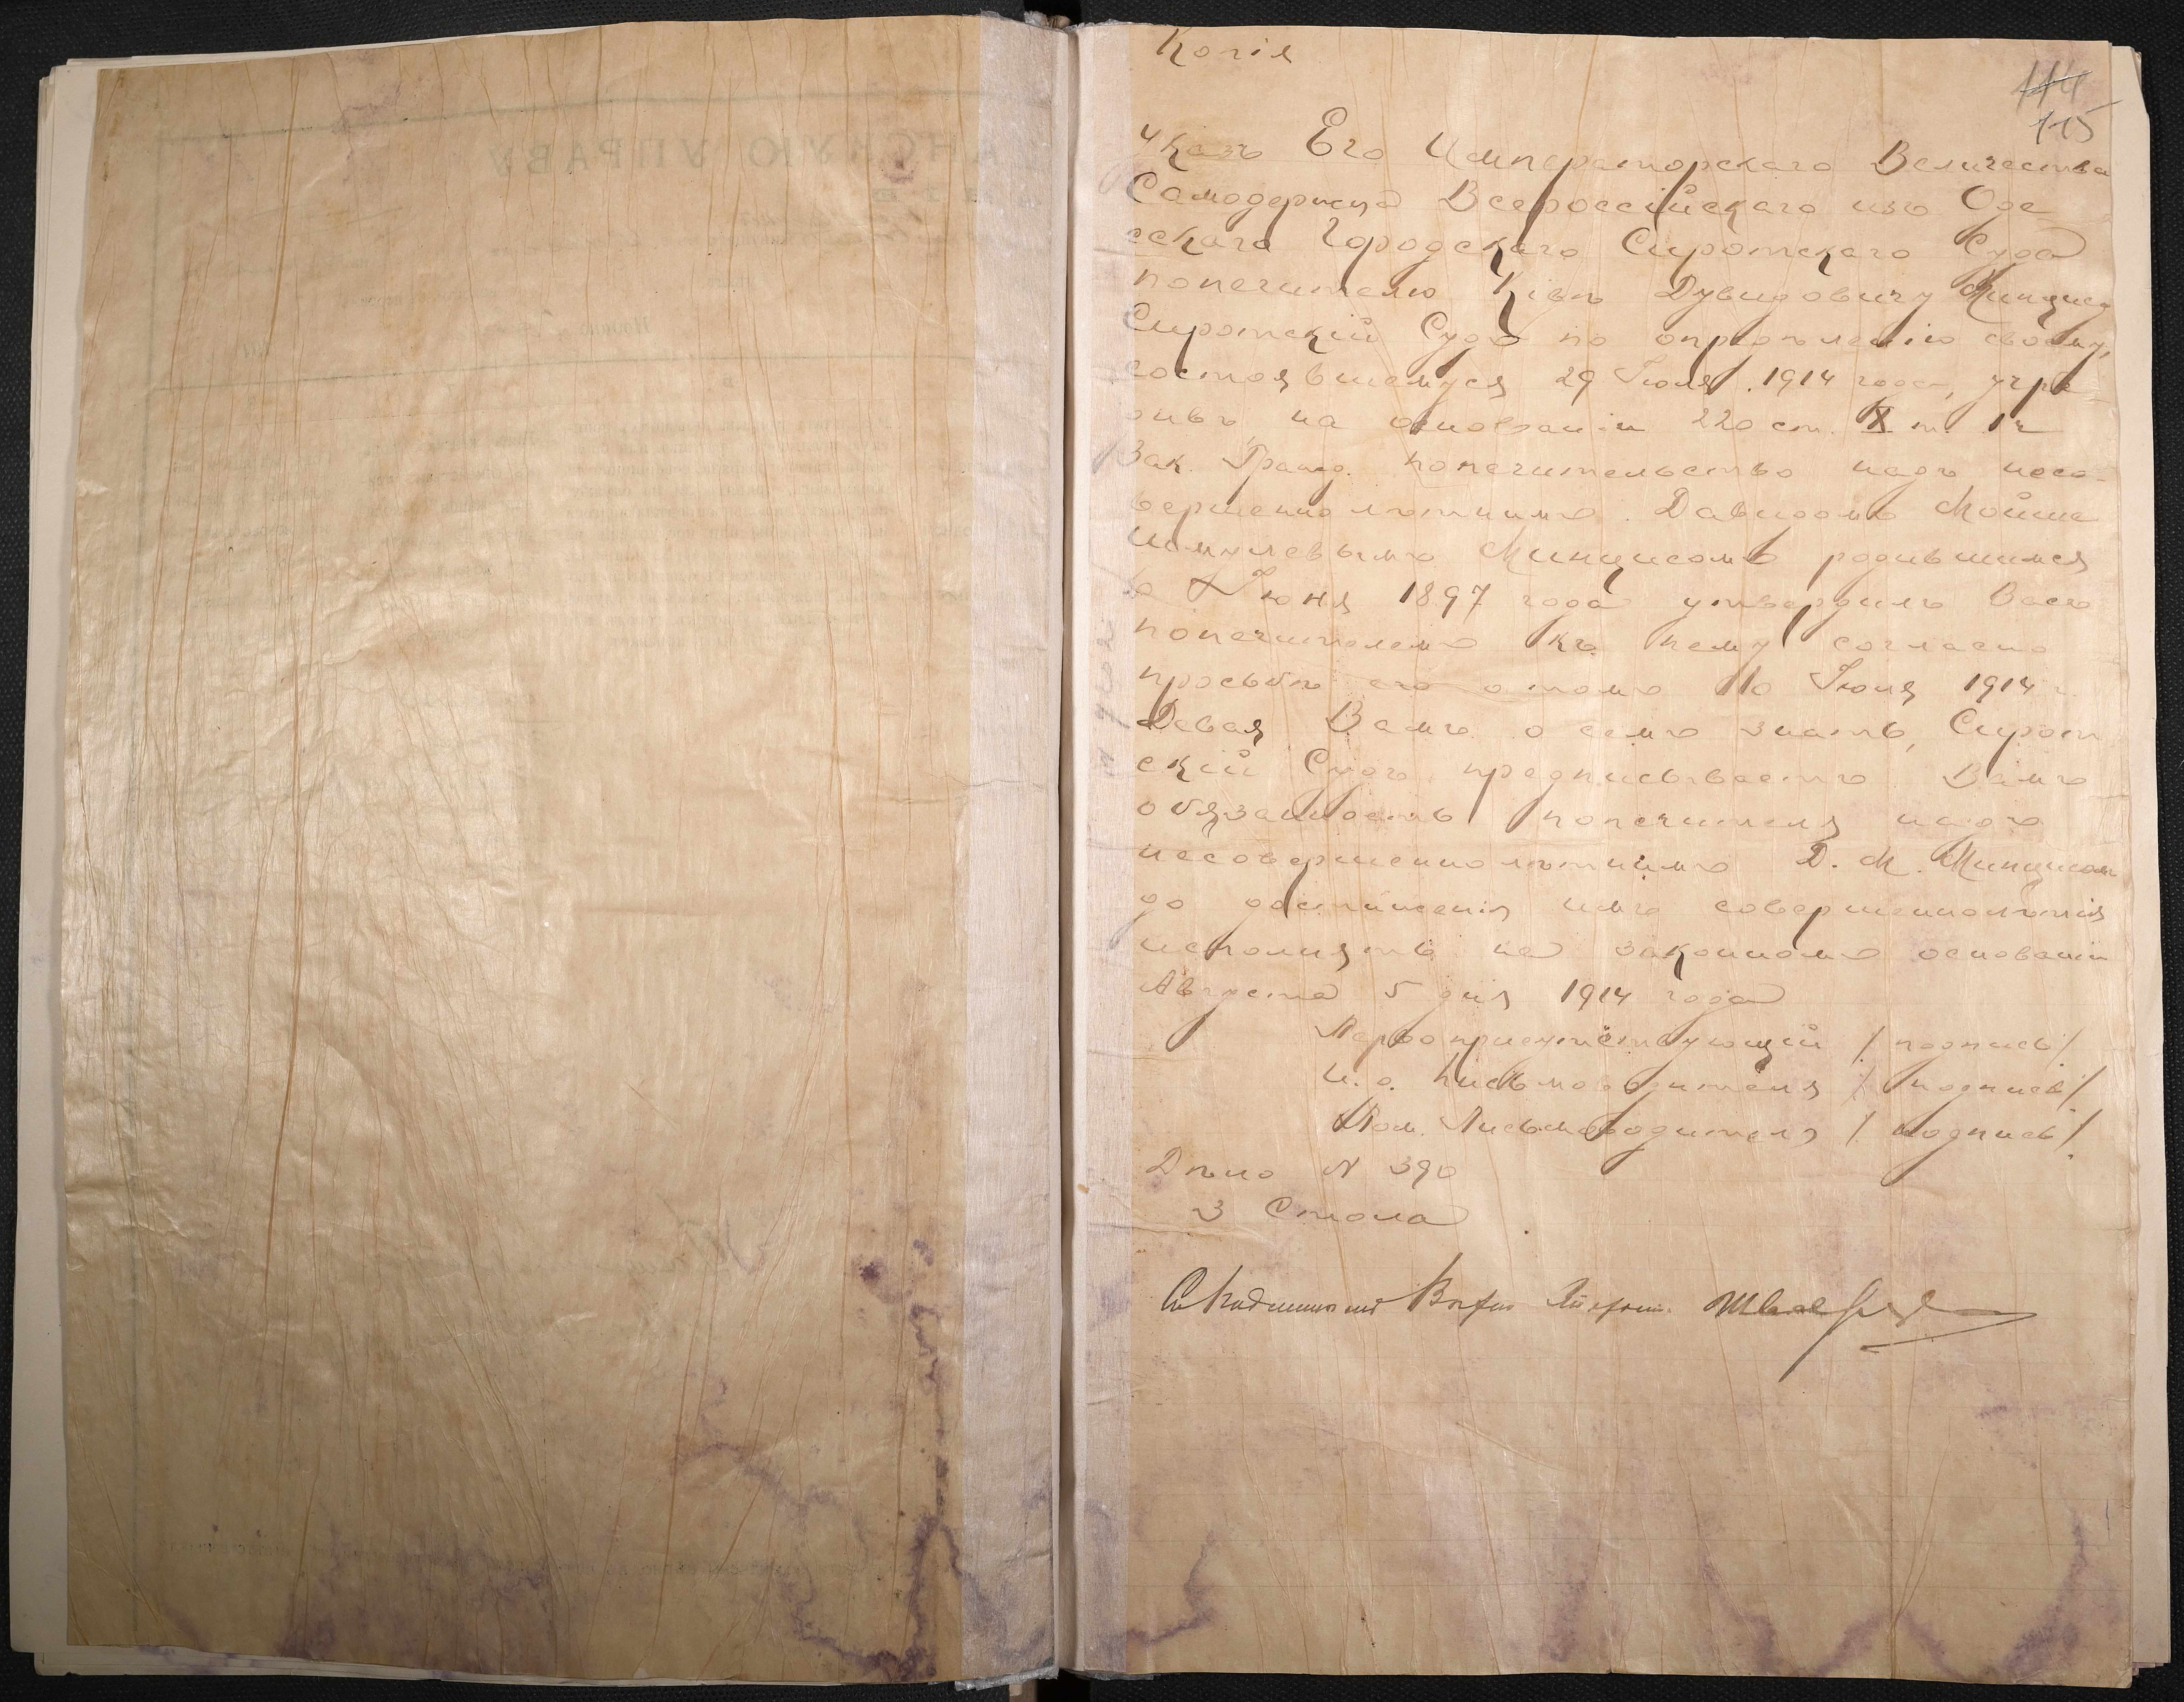 Копія
114
115
Указъ Его Императорскаго Величества
Самодержца Всероссійскаго изъ Оде
сскаго Городского Сиротскаго Суда
попечителю Ківѣ Дувидовичу Минцису
Сиротскій Судъ по опредѣленію своему,
состоявшемуся 29 Іюля 1914 года, учре
дивъ на основаніи 220 ст. X т. 1 ч
Зак. Гражд. попечительство надъ несо-
вершеннолѣтнимъ Давидомъ Мойше
Шмулевымъ Минцисомъ родившимся
Іюня 1897 года утвердилъ Васъ
попечителемъ къ нему согласно
просьбѣ его о томъ 10 Іюня 1914 г.
Давая Вамъ о семъ знать, Сирот
скій Судъ предписываетъ Вамъ
обязанность попечителя надъ
несовершеннолѣтнимъ Д. М. Минцисом
до достиженія имъ совершеннолѣтія
исполнять на законномъ основаніи
Августа 5 дня 1914 года
Первоприсутствующій / подпись /
И. о. письмоводителя / подпись /
Пом. Письмоводителя / подпись /
Дѣло N 390
3 Стола